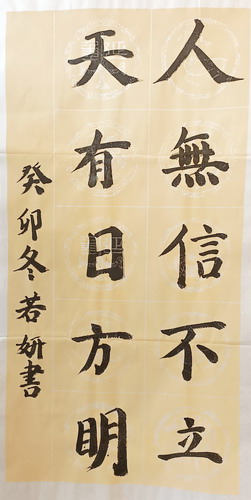 人無信不立
天有日方明
癸卯冬若妍書